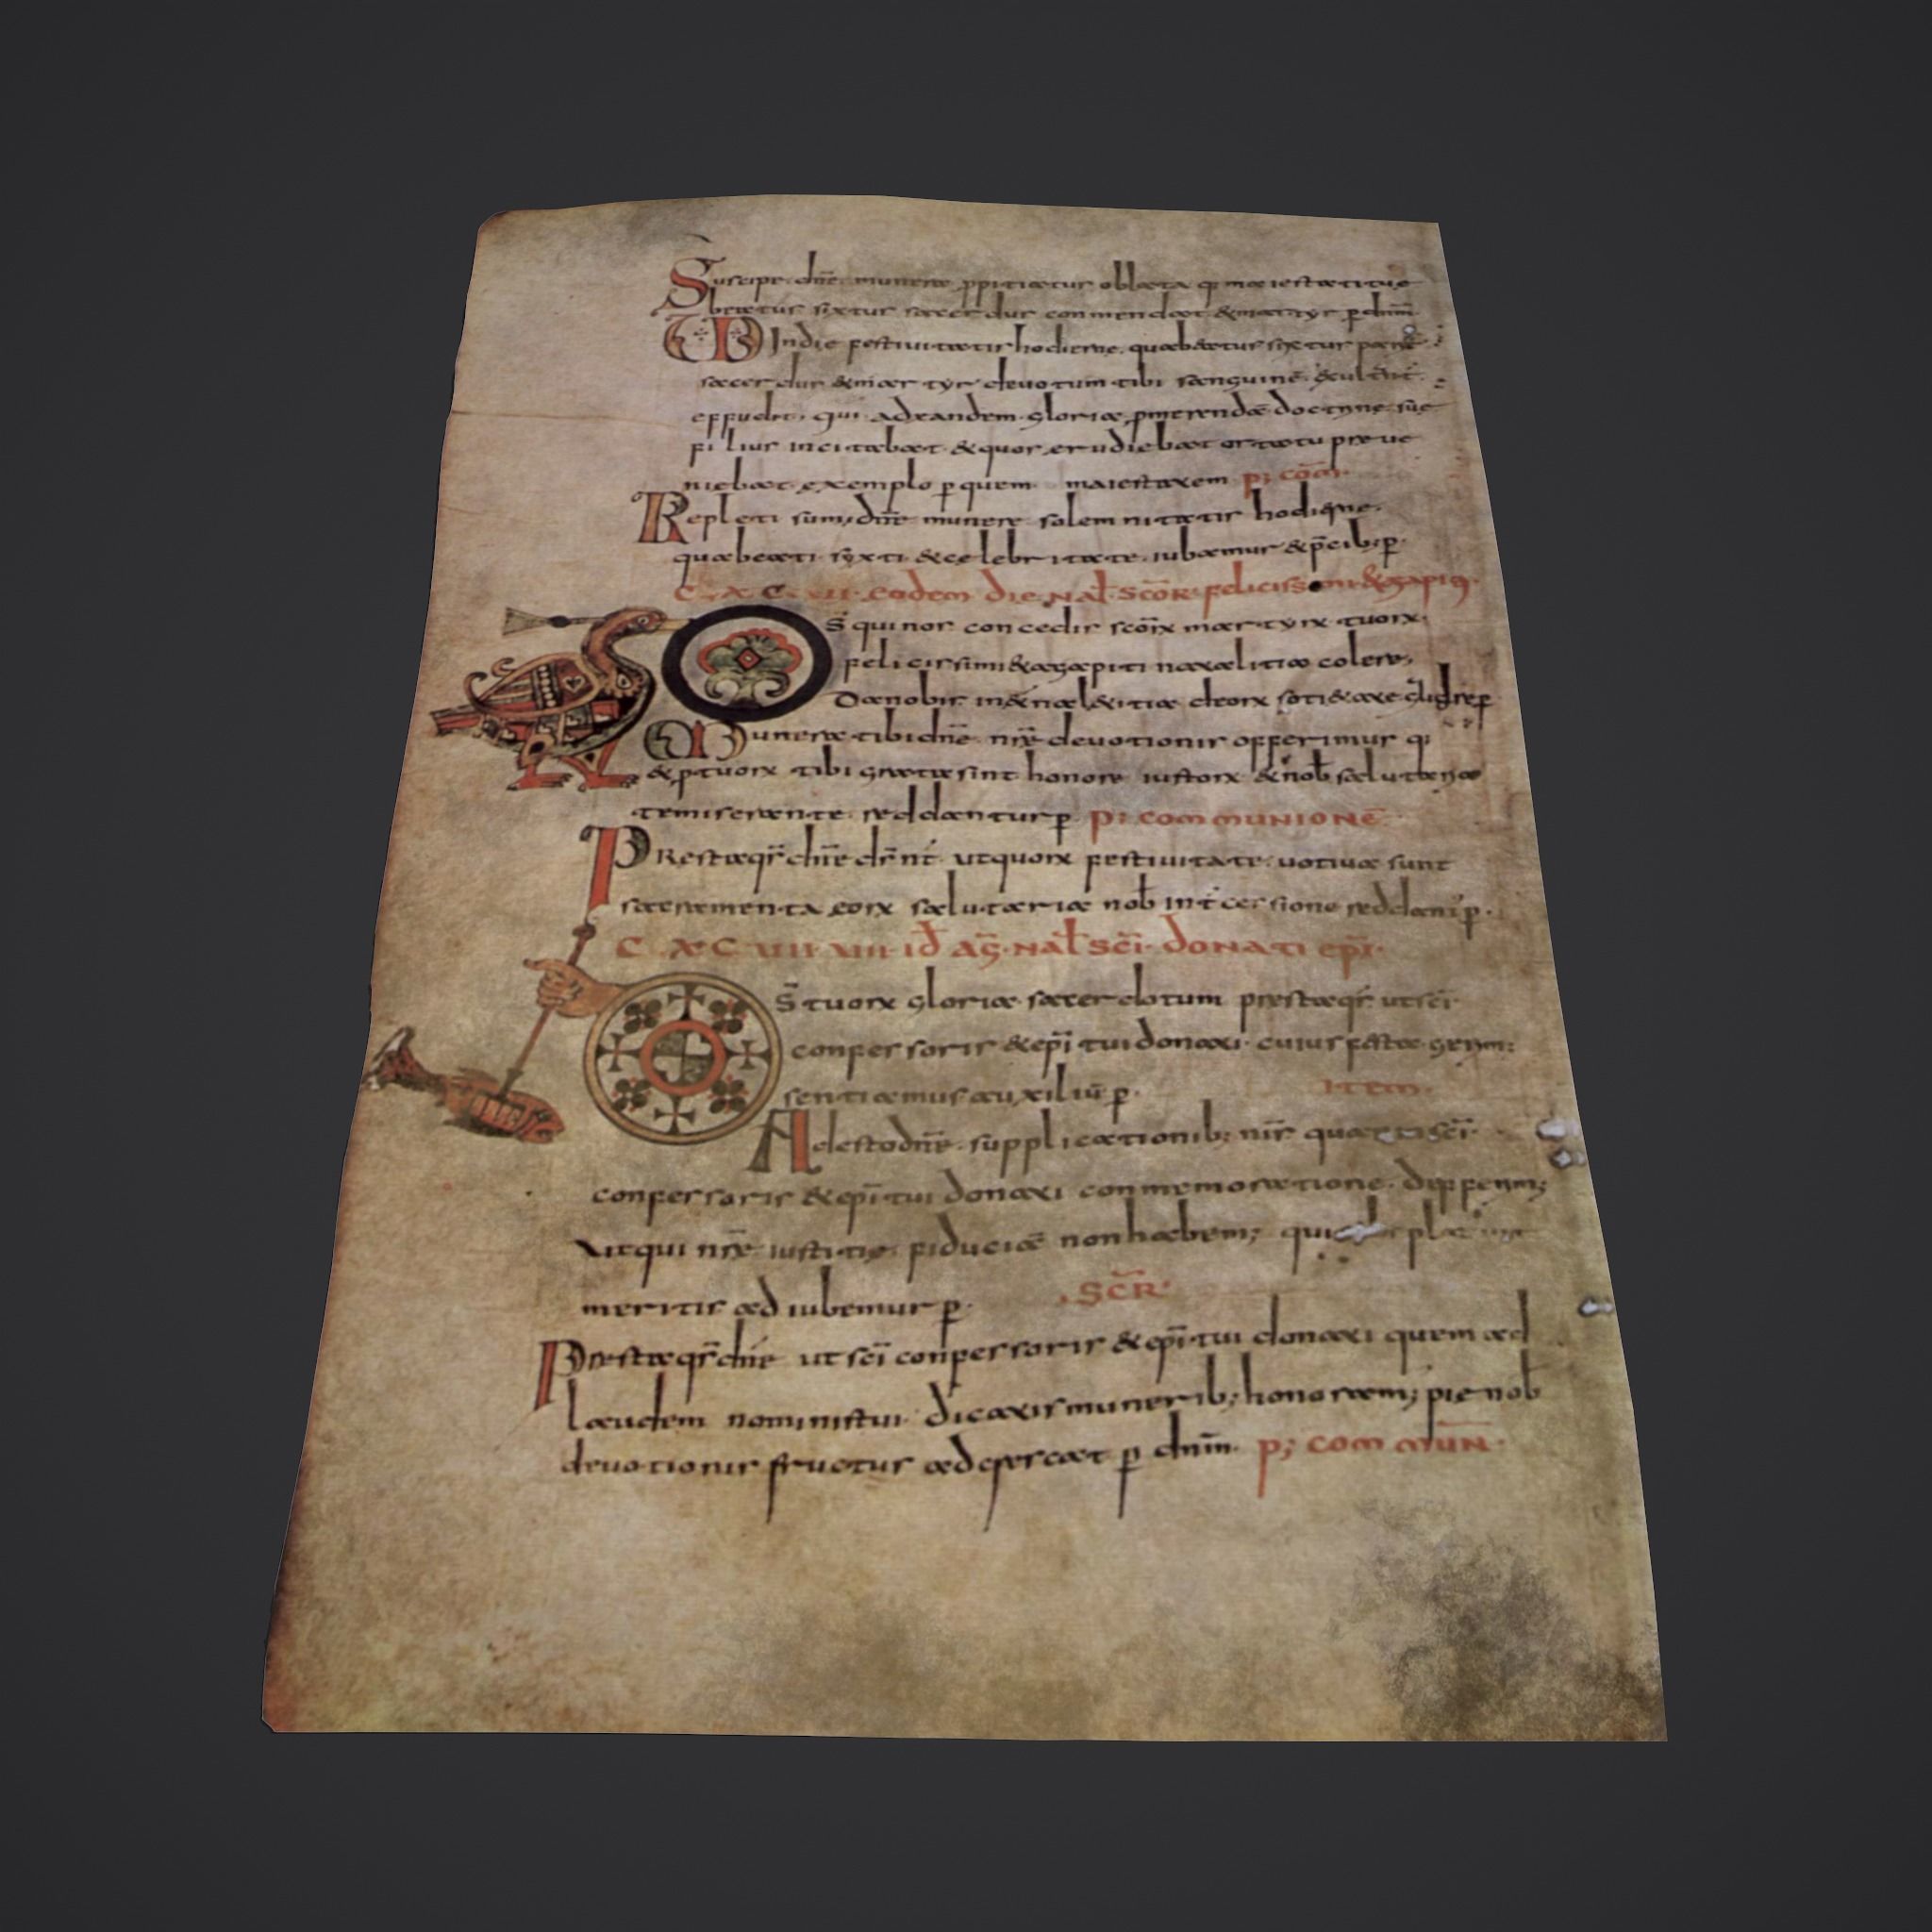 Suscipe dn̄e munera ppitiatur oblata q; maiestati tuae
beatus sixtus sacerdus conmendat & martyr p dnm̄
UD In die festiuitatis hodierne. quabeatus sixtus pa
sacerdus & martyr deuotum tibi sanguine
effudit, qui ad eandem gloriae pmerendā doctrine sue
filius incitabat & quos erudiebat ortatu preue
niebat exemplo p quem maiestatem p; cōm
Repleti sum; dn̄e munere solemnitatis hodierne.
qua beati syxti & celebritate iubamur & p̄cib; p
C X C VII eodem die nat̄ scōr felicissimi & agapiti
Os̄ qui nos concedis scōrx martyrx tuorx
felicissimi & agapiti natalitia colere,
Da nobis in & nal & itia deorx soti & ate
Munera tibi dn̄e nr̄e deuotionis offerimus q;
& p tuorx tibi grata sint honore iustorx & nob̄ salutaria
te miserante reddantur p p; communione
Presta qs̄ dn̄e ds̄ nī utquorx festiuitate uotiua sunt
sacramenta eorx salutaria nob̄ int̄cersione reddant p
C X C VIII VIII id̄ aḡ nat̄ scī donati ep̄i
Os̄ tuorx gloria sacerdotum presta qs̄ ut scī
confessoris & ep̄i tui donati cuius festa gerim;
sentiamus auxiliū p item
Adesto dn̄e supplicationib; nr̄is quas in scī
confessoris & ep̄i tui donati conmemoratione deferim;
Ut qui nr̄e iustitie fiducia non habem; qui
meritis ad iubemur p scr̄
Presta qs̄ dn̄e ut scī confessoris & ep̄i tui donati quem ad
laudem nominis tui dicatis munerib; honoram; pie nob̄
deuotionis fructus ad crescat p dnm̄ p; commūn